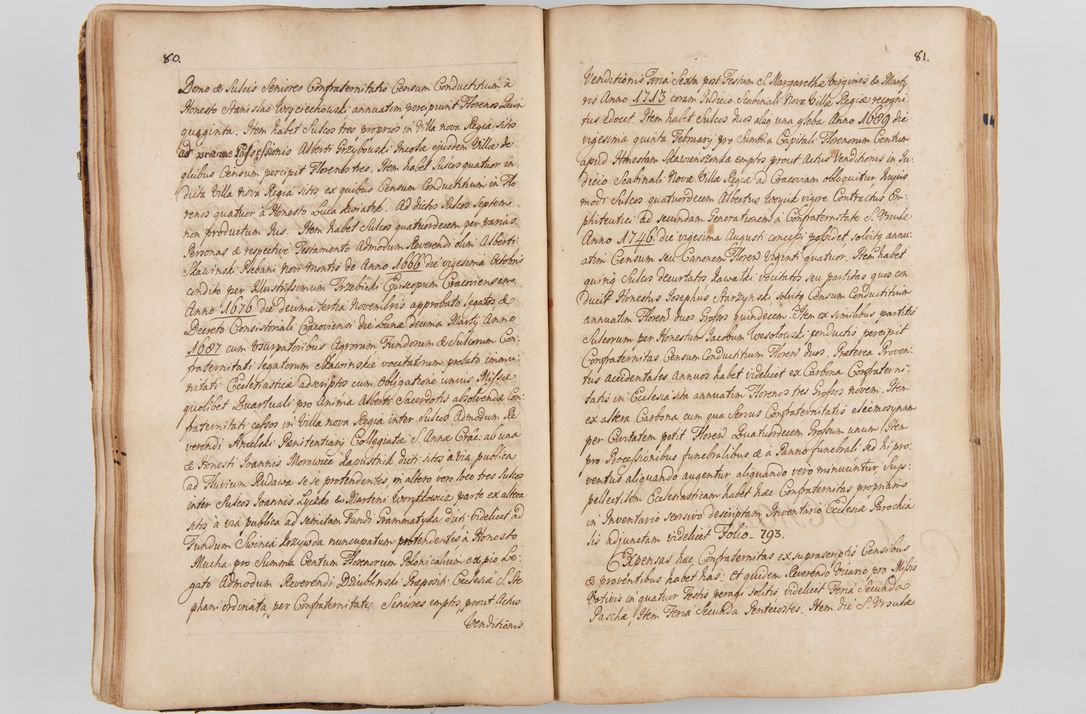 80.
Dono & Sulcis Seniores Confraternitatis Censum Conductitium à
Honesto Stanislao Woyciechowski annuatim percipiunt Florenos Quin
quaginta. Item habet Sulcos tres proprios in Villa nova Regia sitos
ad Possessionis Alberti Grzybowski Incolæ ejusdem Villæ de
quibus Censum percipit Florenos tres. Item habet Sulcos quatuor in
dicta Villa nova Regia sitos ex quibus Censum Conductitium in Flo
renis quatuor à Honesto Luca Kwiatek. Ad dictos Sulcos Septem
non productum Jus. Item habet Sulcos quatuordecem per varias
Personas & respective Testamento Admodum Reverendi olim Alberti
Sławinski Plebani novi Montis de Anno 1666 die vigesima Octobris
condito per Illustrissimum Trzebicki Episcopum Cracoviensem
Anno 1676 die decima tertia Novembris approbato legatos &
Decreto Consistoriali Cracoviensi die Lunæ decima Martÿ Anno
1687 cum usurpatoribus Agrorum Fundorum & Sulcorum Con
fraternitati legatorum Sławinskie vocitatorum prolato immu
nitati Ecclesiasticæ adscriptos cum obligatione unius Missæ
quolibet Quartuali pro Anima Alberti Sacerdotis absolvendæ Con
fraternitati cessos in Villa nova Regia inter Sulcos Admodum Re
verendi Ancelski Penitentiarii Collegiatæ S. Annæ Crac: ab una
& Honesti Joannis Morowiec Kapustnik dicti sitos à via publica
ad Fluvium Rudawa se se protendentes, in altero vero loco tres Sulcos
inter Sulcos Joannis & Martini parte ex altera
sitos à via publica ad semitam Fundi Grammatyka dicti videlicet ad
Fundum Swinia Krzywda nuncupatum protendentes à Honesto
Mucha pro Summa Centum Florenorum Polonicalium ex pio Le
gato Admodum Reverendi Dziublinski Præpositi Ecclesiæ S. Ste
phani ordinata, per Confraternitatis Seniores emptos, prout Actus
Venditionis
81.
Venditionis Feria Sexta post Festum S. Margarethæ Virginis & Marty
ris Anno 1713 coram Judicio Scabinali Novæ Villæ Regiæ recogni
tus edocet. Item habet Sulcos duos alias una gleba Anno 1689 die
vigesima quinta February pro Summa Capitali Florenorum Centum
apud Honestam emptos prout Actus Venditionis in Ju
dicio Scabinali Novæ Villæ Regiæ ad Cracoviam obloquitur hujus
modi Sulcos quatuordecem Albertus Woycik vigore Contractus Em
phiteutici ad secundam Generationem à Confraternitate S. Ursulæ
Anno 1746 die vigesima Augusti concessi possidet solvitq annu
atim Censum seu Canonem Floren Viginti quatuor. Item habet
quinq Sulcos decurtatos Kawałki vocitatos seu partitas quos con
ducit Honestus Josephus Starzynski solvitq Censum Conductitium
annuatim Floren duos Grossos quindecem. Item ex similibus partitis
Sulcorum per Honestum Jacobum Wesołowski conductis percipit
Confraternitas Censum Conductitium Floren duos. Præterea Proven
tus accidentales Annuos habet videlicet ex Carbona Confraterni
tatis in Ecclesia sita annuatim Florenos tres Grossos novem. Item
ex altera Carbona cum qua Servus Confraternitatis eleemosynam
per Civitatem petit Floren Quatuordecem Grossum unum. Item
pro Processionibus funebralibus & à Panno funebrali sed hi pro
ventus aliquando augentur aliquando vero minuuntur. Sup-
pellectilem Ecclesiasticam habet hæc Confraternitas propriam
in Inventario sensivo descriptam Inventario Ecclesiæ Parochia
lis adjunctam videlicet Folio 293.
Expensas hæc Confraternitas ex suprascriptis Censibus
& proventibus habet has: et quidem Reverendo Vicario pro Missis
Votivis in quatuor Festis peragi solitis videlicet Feria Secunda
Paschæ, Item Feria Secunda Pentecostes. Item die S. Ursulæ